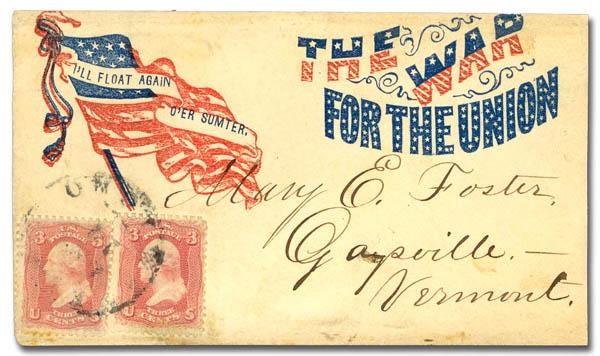 I'LL FLOAT AGAIN
O'ER SUMTER.
THE WAR
FOR THE UNION
Mary E. Foster.
Gaysville.—
Vermont.
3 U.S. POSTAGE 3
U THREE CENTS S
3 U.S. POSTAGE 3
U THREE CENTS S